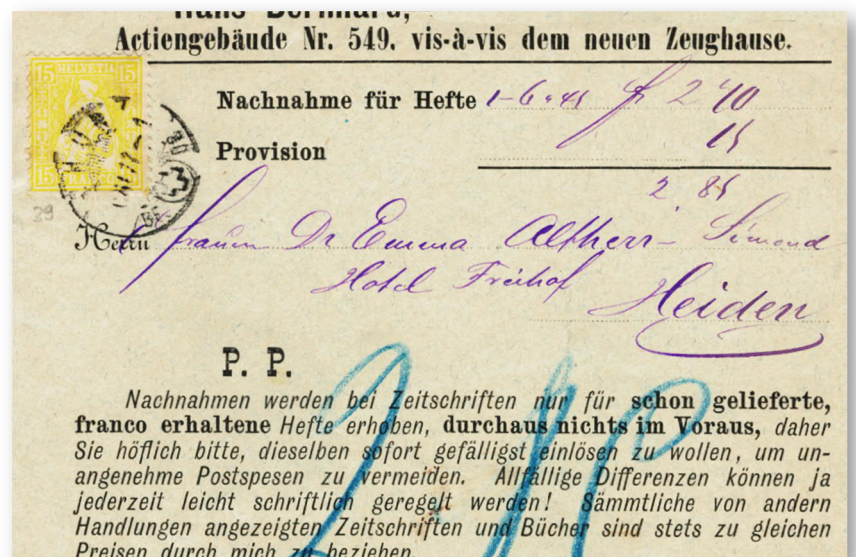 Hans Bernhard,
Actiengebäude Nr. 549. vis-à-vis dem neuen Zeughause.
15 HELVETIA 15
15 FRANCO 15
Nachnahme für Hefte 1-6 fr 2 70
Provision 15
2 85
29
Herrn Frauen Dr Emma Altherr-Simond
Hotel Freihof
Heiden
P. P.
Nachnahmen werden bei Zeitschriften nur für schon gelieferte,
franco erhaltene Hefte erhoben, durchaus nichts im Voraus, daher
Sie höflich bitte, dieselben sofort gefälligst einlösen zu wollen, um un-
angenehme Postspesen zu vermeiden. Allfällige Differenzen können ja
jederzeit leicht schriftlich geregelt werden! Sämmtliche von andern
Handlungen angezeigten Zeitschriften und Bücher sind stets zu gleichen
Preisen durch mich zu beziehen.